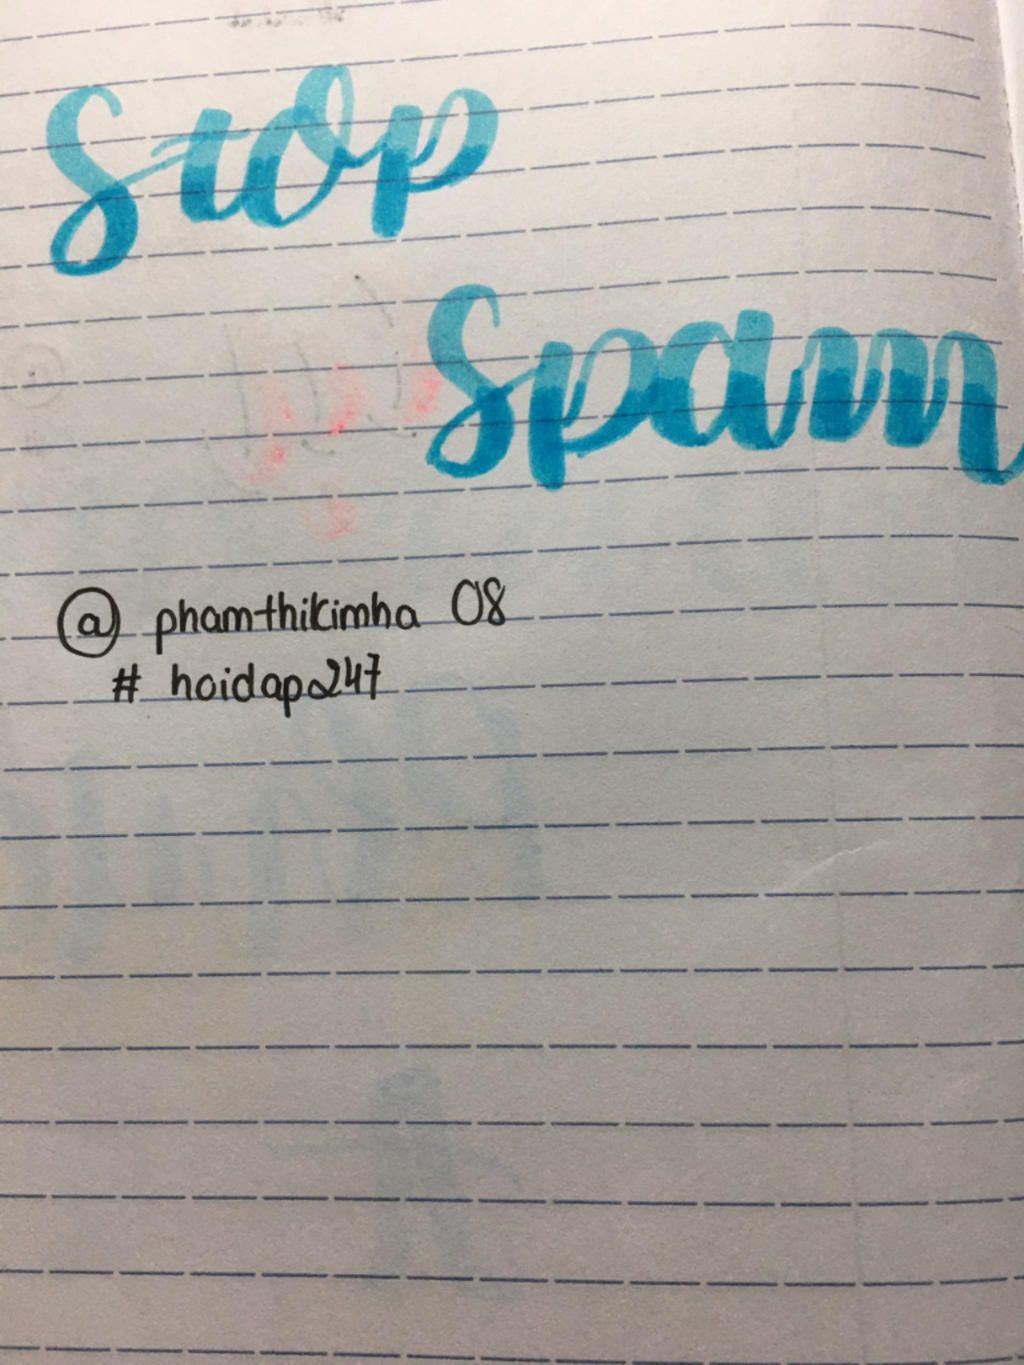 Stop
Spam
@ phamthikimha 08
# hoidap247